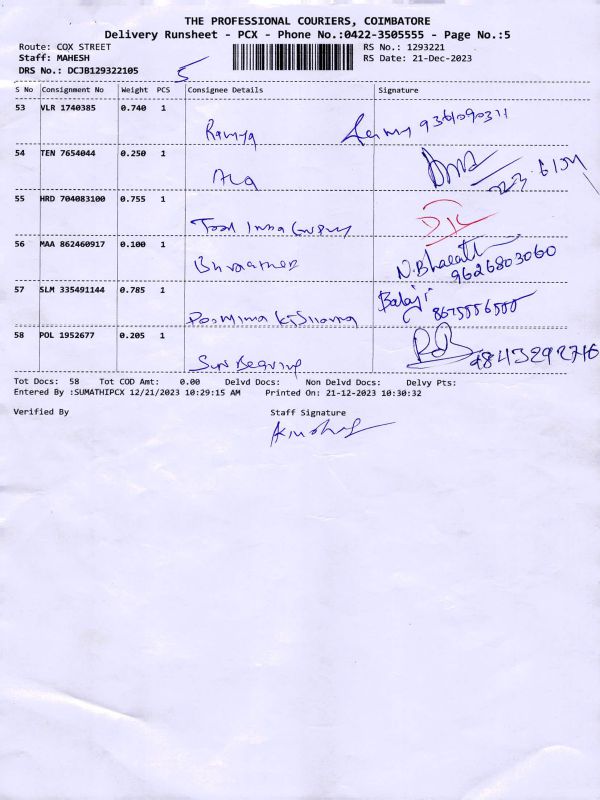 THE PROFESSIONAL COURIERS, COIMBATORE
Delivery Runsheet - PCX - Phone No.:0422-3505555 - Page No.:5
Route: COX STREET RS No.: 1293221
Staff: MAHESH RS Date: 21-Dec-2023
DRS No.: DCJB129322105 5
S No Consignment No Weight PCS Consignee Details Signature
53 VLR 1740385 0.740 1
Ramya
54 TEN 7654044 0.250 1
55 HRD 704083100 0.755 1
56 MAA 862460917 0.100 1
N.Bharath
9626803060
57 SLM 335491144 0.785 1 Balaji
58 POL 1952677 0.205 1
9843292716
Sun Bearing
Tot Docs: 58 Tot COD Amt: 0.00 Delvd Docs: Non Delvd Docs: Delvy Pts:
Entered By :SUMATHIPCX 12/21/2023 10:29:15 AM Printed On: 21-12-2023 10:30:32
Verified By Staff Signature